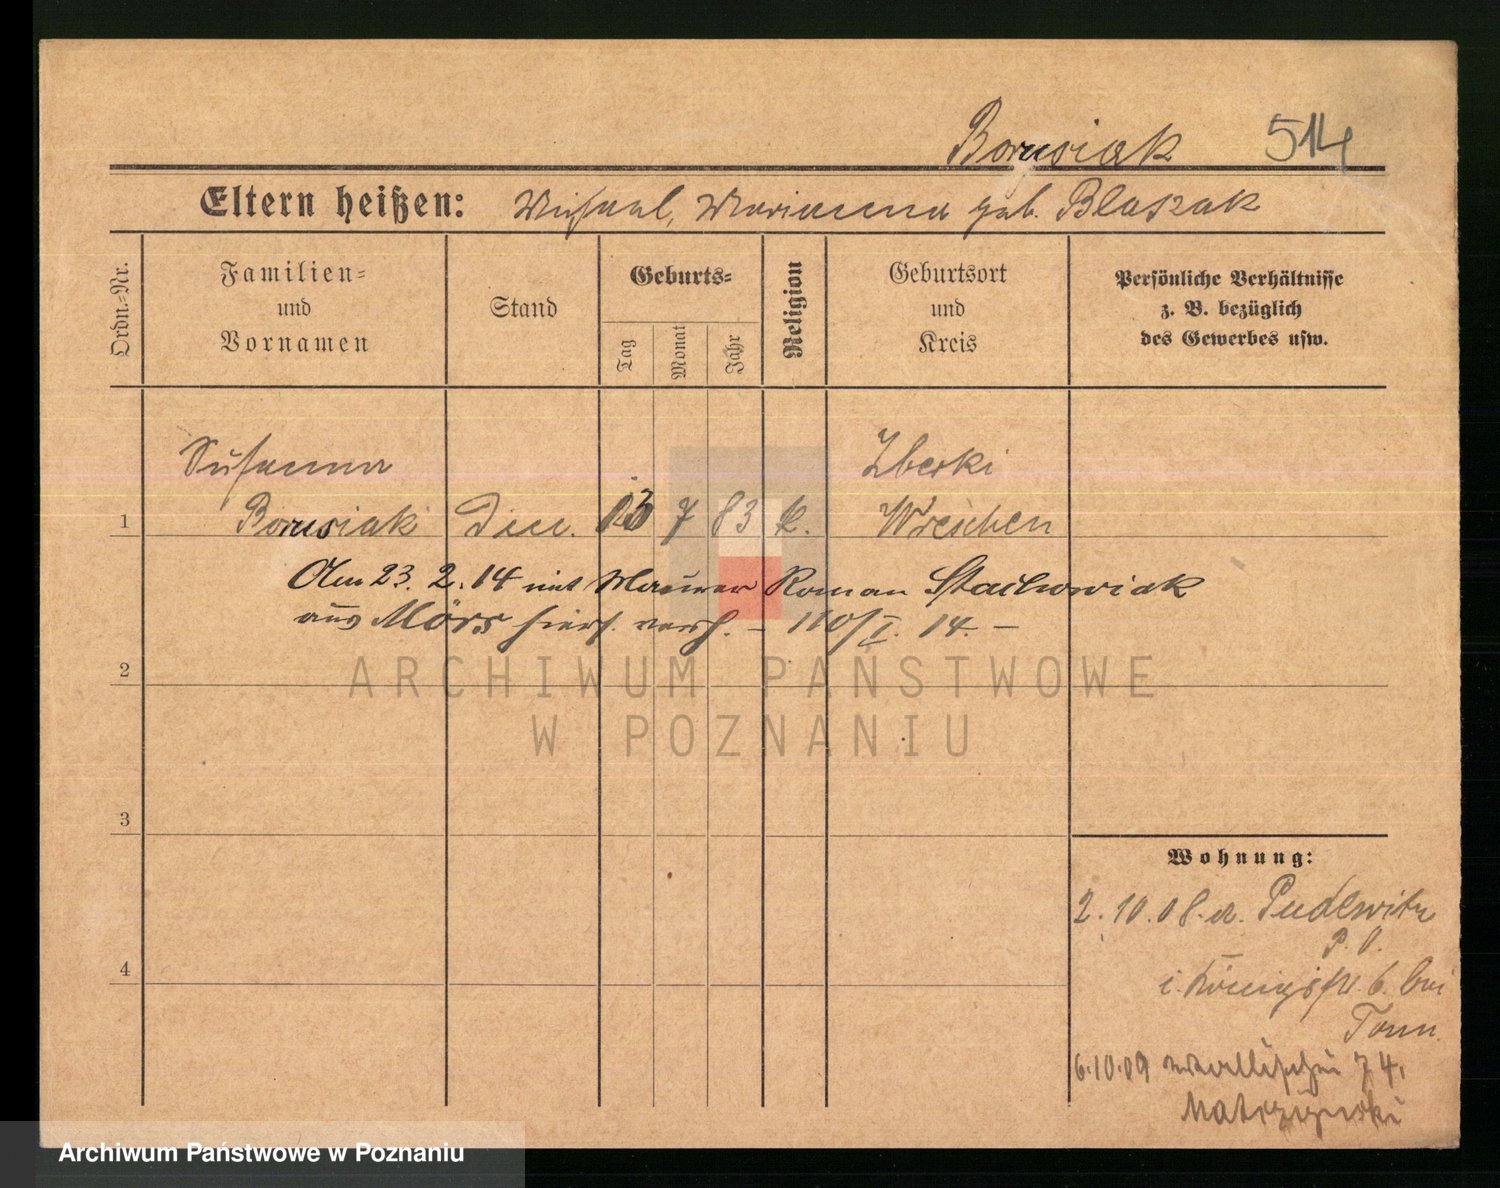 Borusiak 514
Eltern heißen: Michael, Marianna geb. Blaszak
Ordn.=Nr.
Familien=
und
Vornamen
Stand
Geburts=
Tag
Monat
Jahr
Religion
Geburtsort
und
Kreis
Persönliche Verhältnisse
z. B. bezüglich
des Gewerbes usw.
Susanna Zberki
1 Borusiak 13 7 83 k. Wreschen
Am 23. 2. 14 mit Maurer Roman Stachowiak
aus Mörs hiers. verh. – 110/I. 14. –
2
3
4
Wohnung:
2. 10. 08. a. Pudewitz
P. O.
i. Königstr. 6. bei
6.10.09 Wallischei 74,
ARCHIWUM PAŃSTWOWE
W POZNANIU
Archiwum Państwowe w Poznaniu